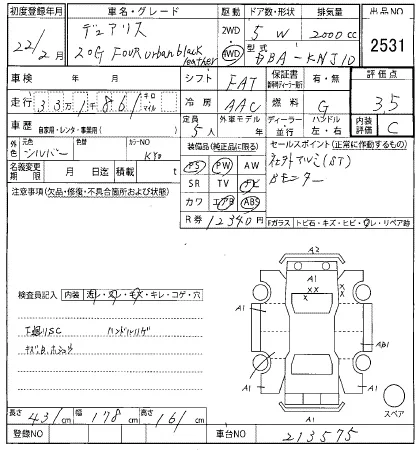 初度登録年月 車名・グレード 駆動 ドア数・形状 排気量 出品NO
22/2月 デュアリス 2WD 4WD 5 W 2000cc 2531
20G FOUR urban black leather 型式 DBA-KNJ10
車検 年 月 シフト FAT 保証書 有・無 評価点
走行 33万1千861 キロ マイル 冷房 AAC 燃料 G 3,5
車歴 自家用・レンタ・事業用( ) 定員 5人 外車モデル 年 ディーラー 並行 ハンドル 左・右 内装評価 C
外色 元色 シルバー 色替 カラーNO KY0 装備品(純正品に限る) セールスポイント(正常に作動するもの)
名義変更期限 月 日 迄 積載 t PS PW AW 社外アルミ(ST)
注意事項(欠品・修復・不具合箇所および状態) SR TV ナビ Bモニター
カワ エアB ABS
R券 12340円 Fガラス トビ石・キズ・ヒビ・ワレ・リペア跡
A2
A1 A1 X X X
検査員記入 内装 汚レ・スレ・キズ・キレ・コゲ・穴
A1 AB1
下廻りSC ハンドルハゲ
キズ・A,
A1
A1 スペア
長さ 431cm 幅 178cm 高さ 161cm
登録NO 車台NO 213575